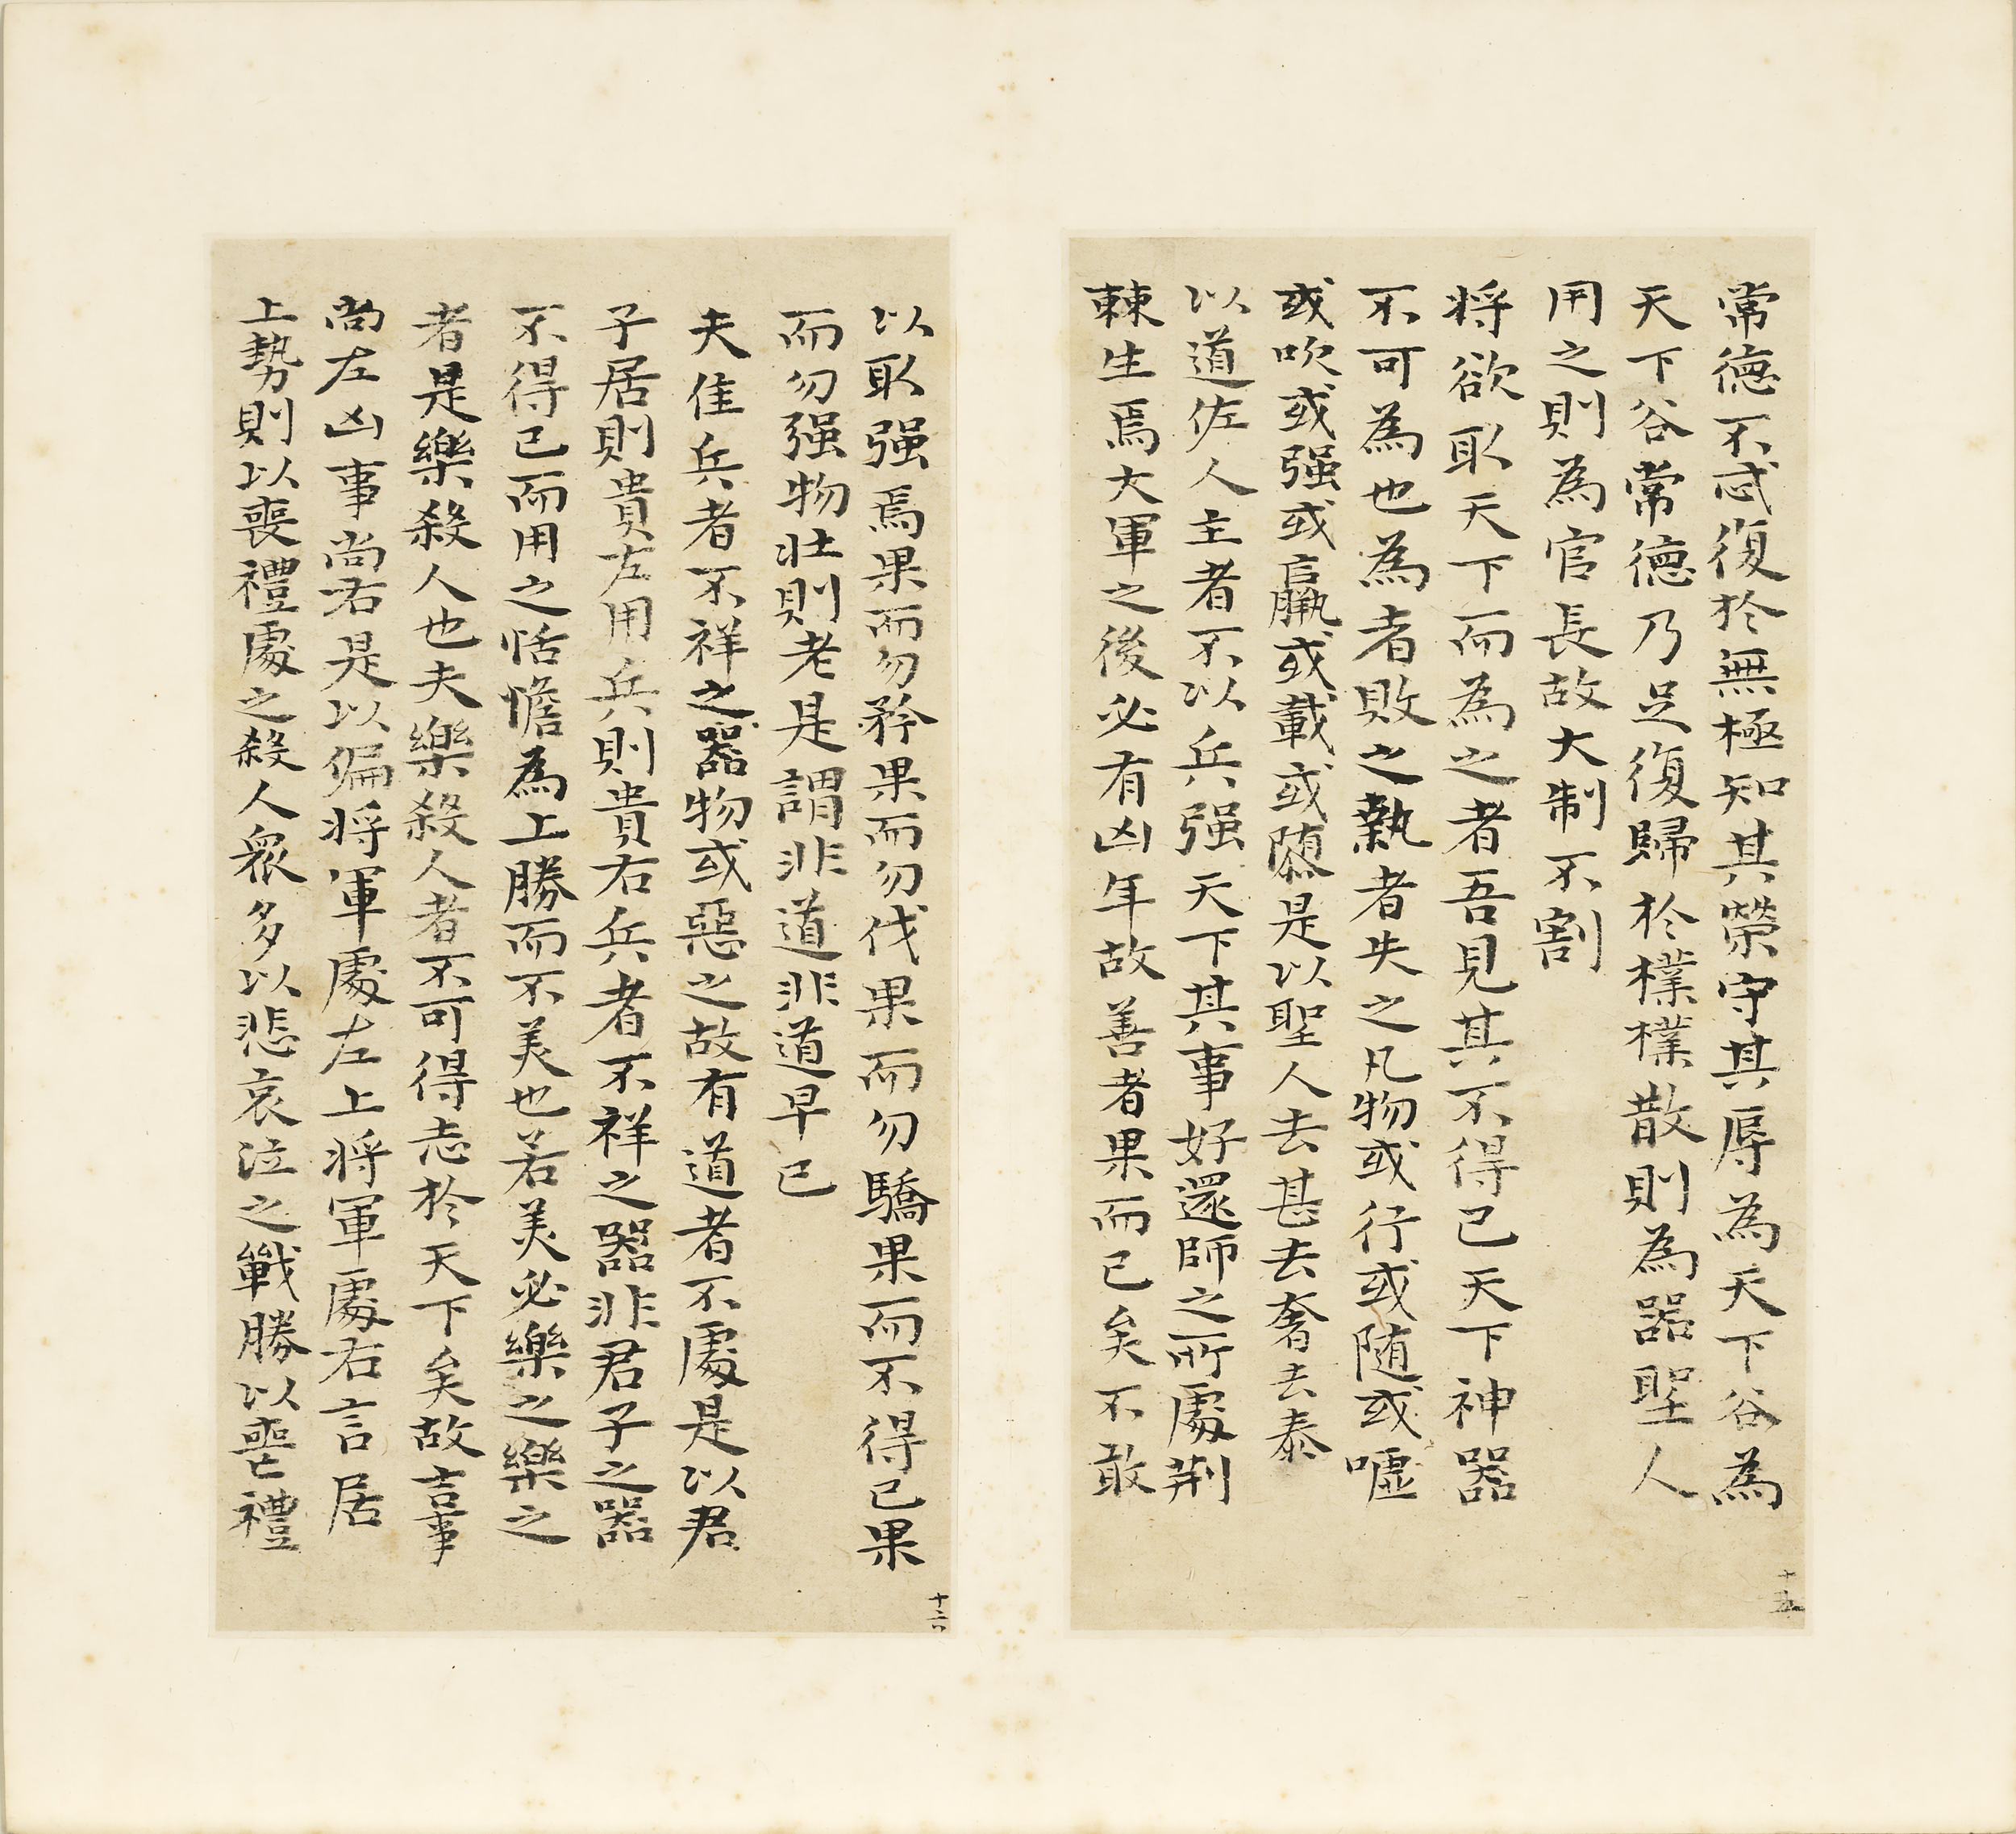 常德不忒復於無極知其榮守其辱為天下谷為
天下谷常德乃足復歸於樸樸散則為器聖人
用之則為官長故大制不割
將欲取天下而為之者吾見其不得已天下神器
不可為也為者敗之執者失之凡物或行或随或嘘
或吹或强或羸或載或隳是以聖人去甚去奢去泰
以道佐人主者不以兵强天下其事好還師之所處荆
棘生焉大軍之後必有凶年故善者果而已矣不敢
十五
以取强焉果而勿矜果而勿伐果而勿驕果而不得已果
而勿强物壯則老是謂非道非道早已
夫佳兵者不祥之器物或惡之故有道者不處是以君
子居則貴左用兵則貴右兵者不祥之器非君子之器
不得已而用之恬憺為上勝而不美也若美必樂之樂之
者是樂殺人也夫樂殺人者不可得志於天下矣故吉事
尚左凶事尚右是以偏將軍處左上將軍處右言居
上勢則以喪禮處之殺人衆多以悲哀泣之戰勝以喪禮
十六